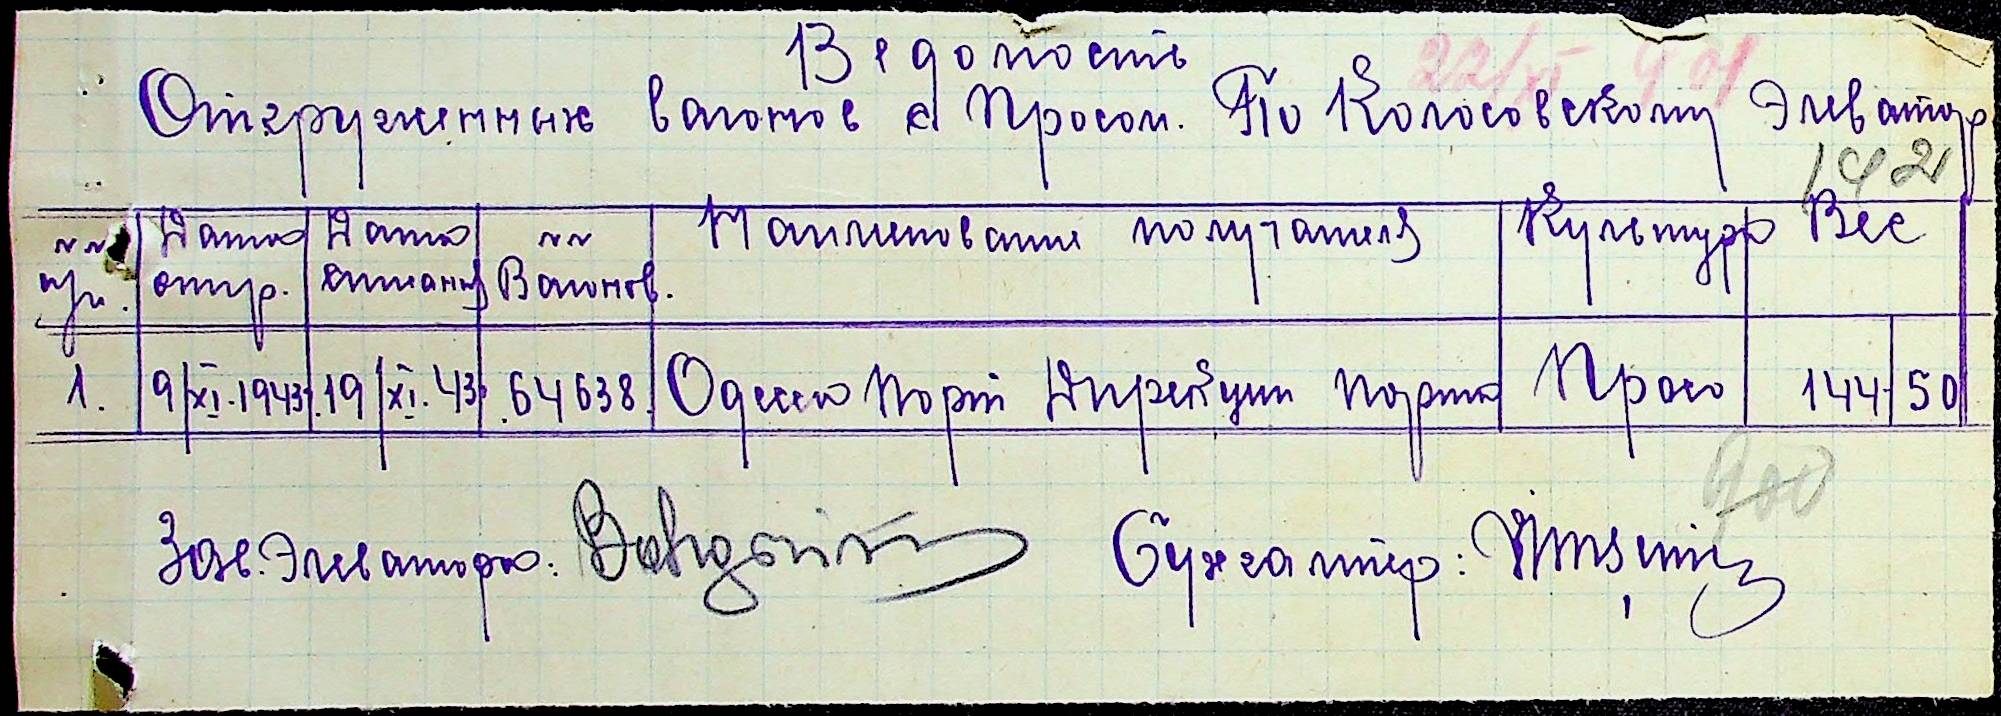 Ведомость
22/XI 401
Отгруженных вагонов с Просом. По Колосовскому Элеватор
142
№№ п/п. Дата отгр. Дата списания №№ Вагонов. Наименование получателя Культура Вес
1. 9/XI.1943. 19/XI.43. 64638. Одесса порт Дирекции порта Просо 144 50
900
Зав. Элеватора: Бухгалтер: